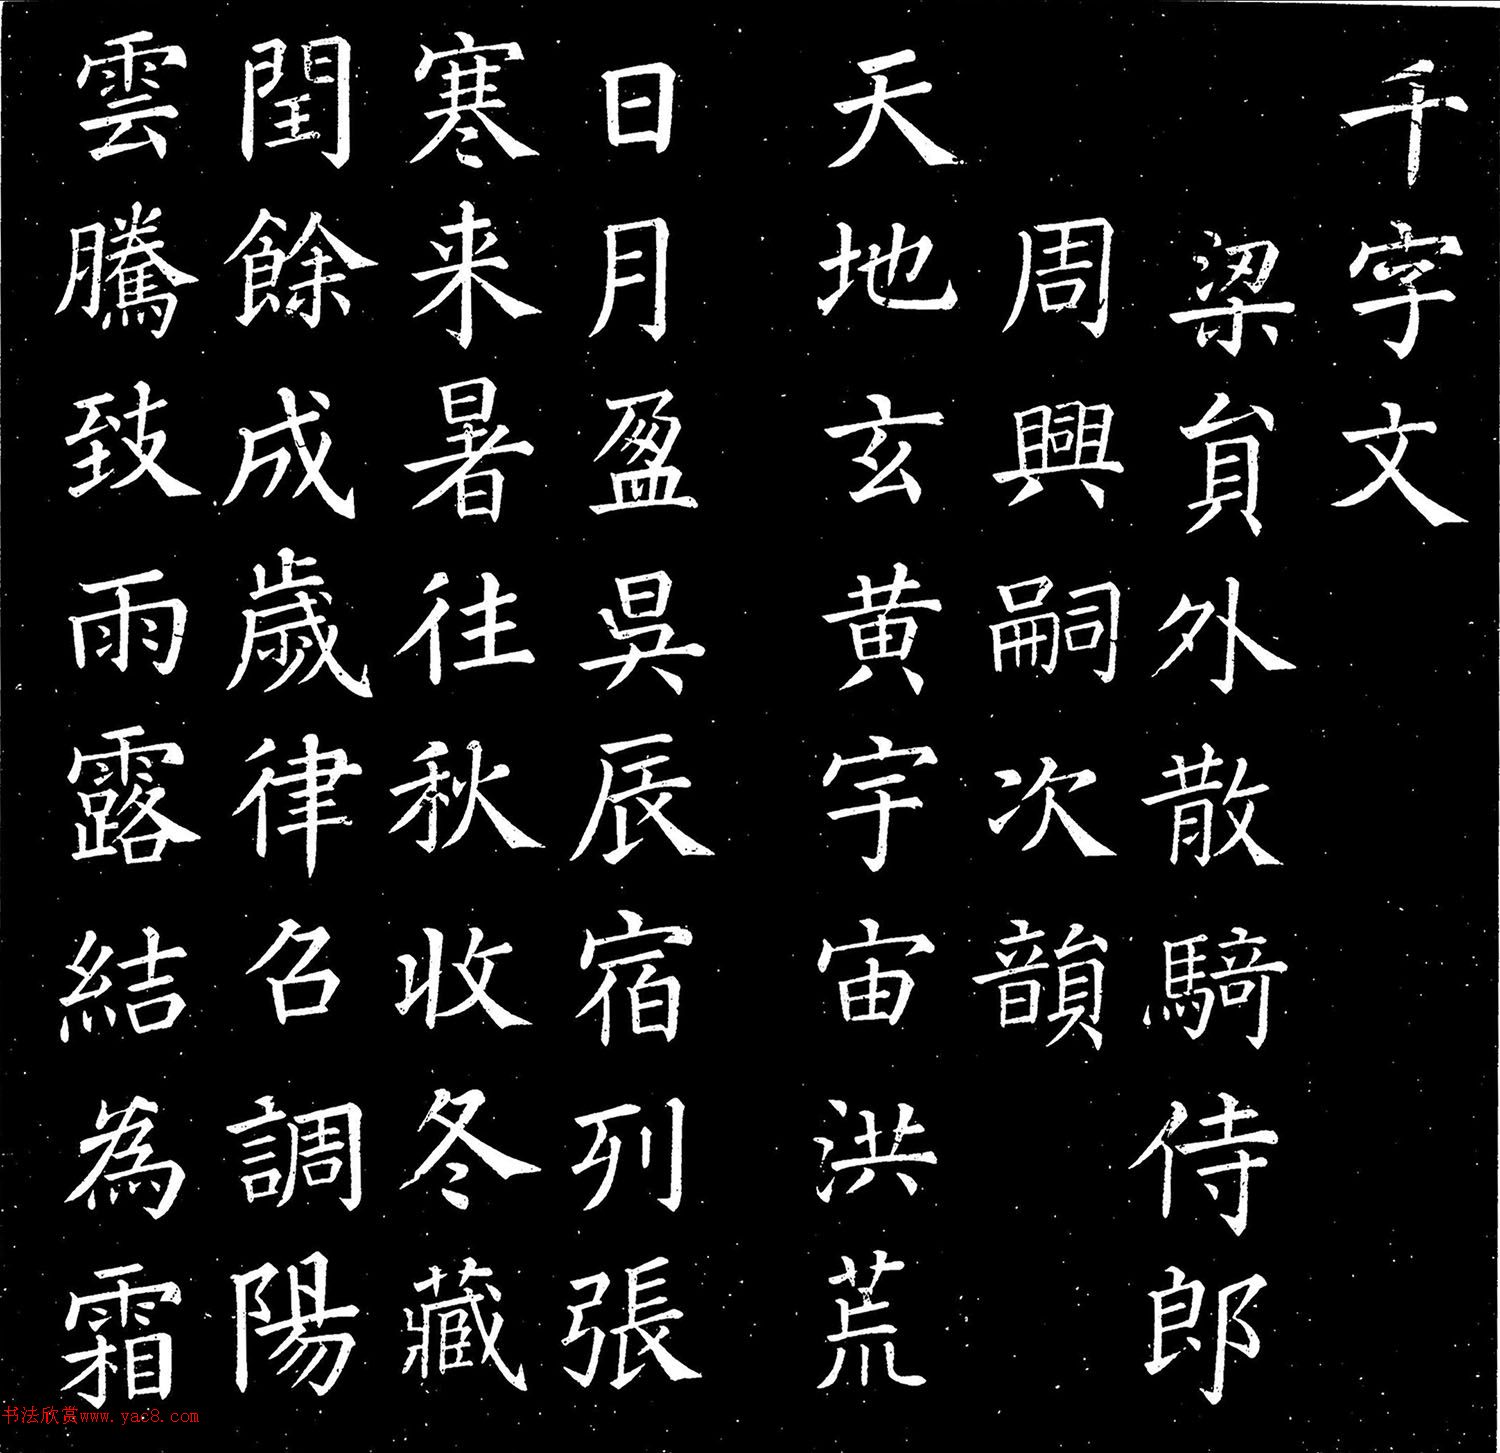 千字文
梁貟外散騎侍郎
周興嗣次韻
天地玄黄宇宙洪荒
日月盈昃辰宿列張
寒来暑往秋收冬藏
閏餘成歲律召調陽
雲騰致雨露結為霜
书法欣赏www.yac8.com